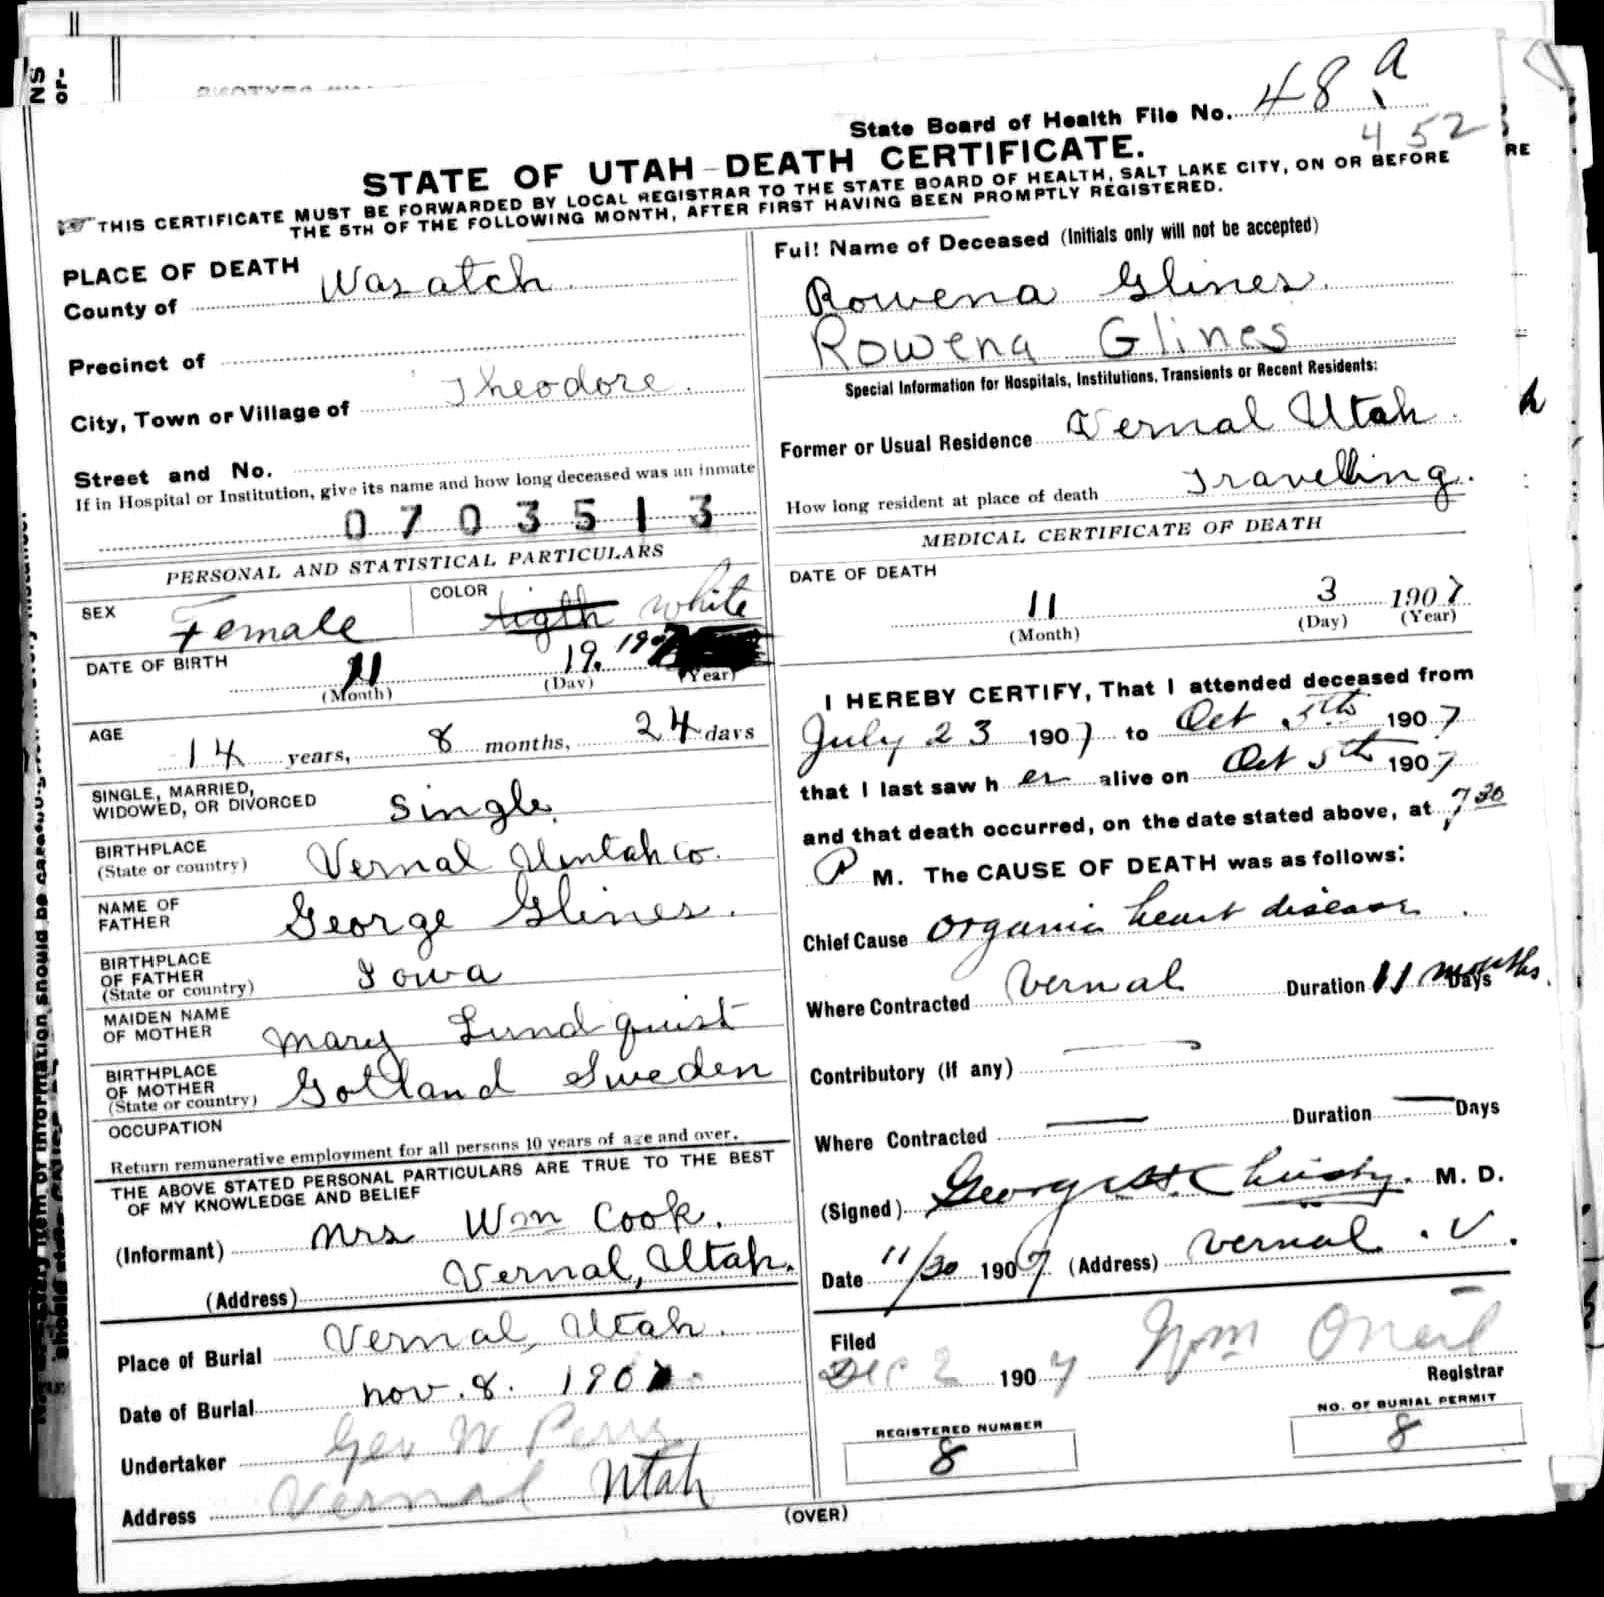 NS
or-
State Board of Health File No. 48 a
4 52
STATE OF UTAH-DEATH CERTIFICATE.
RE
THIS CERTIFICATE MUST BE FORWARDED BY LOCAL REGISTRAR TO THE STATE BOARD OF HEALTH, SALT LAKE CITY, ON OR BEFORE
THE 5TH OF THE FOLLOWING MONTH, AFTER FIRST HAVING BEEN PROMPTLY REGISTERED.
PLACE OF DEATH
County of Wasatch
Precinct of
City, Town or Village of Theodore.
Street and No.
If in Hospital or Institution, give its name and how long deceased was an inmate
0703513
PERSONAL AND STATISTICAL PARTICULARS
SEX Female
COLOR ligth white
DATE OF BIRTH 11 19. 190
(Month) (Day) (Year)
AGE 14 years, 8 months, 24 days
SINGLE, MARRIED,
WIDOWED, OR DIVORCED Single
BIRTHPLACE
(State or country) Vernal Uintah Co.
NAME OF
FATHER George Glines.
BIRTHPLACE
OF FATHER
(State or country) Iowa
MAIDEN NAME
OF MOTHER Mary Lundquist
BIRTHPLACE
OF MOTHER
(State or country) Gotland Sweden
OCCUPATION
Return remunerative employment for all persons 10 years of age and over.
THE ABOVE STATED PERSONAL PARTICULARS ARE TRUE TO THE BEST
OF MY KNOWLEDGE AND BELIEF
(Informant) Mrs Wm Cook.
(Address) Vernal, Utah.
Place of Burial Vernal, Utah.
Date of Burial Nov. 8. 190
Undertaker Geo W Perry
Address Vernal Utah
Full Name of Deceased (Initials only will not be accepted)
Rowena Glines.
Rowena Glines
Special Information for Hospitals, Institutions, Transients or Recent Residents:
Former or Usual Residence Vernal Utah.
How long resident at place of death Travelling.
MEDICAL CERTIFICATE OF DEATH
DATE OF DEATH
11 3 1907
(Month) (Day) (Year)
I HEREBY CERTIFY, That I attended deceased from
July 23 1907 to Oct 5th 1907
that I last saw her alive on Oct 5th 1907
and that death occurred, on the date stated above, at 7 30
P M. The CAUSE OF DEATH was as follows:
Chief Cause Organic heart disease.
Where Contracted Vernal Duration 11 months. Days
Contributory (if any)
Where Contracted Duration Days
(Signed) George H. Christy. M. D.
Date 11/30 1907. (Address) Vernal. U.
Filed
Dec 2 1907 Wm Oneil
Registrar
REGISTERED NUMBER
8
NO. OF BURIAL PERMIT
8
(OVER)